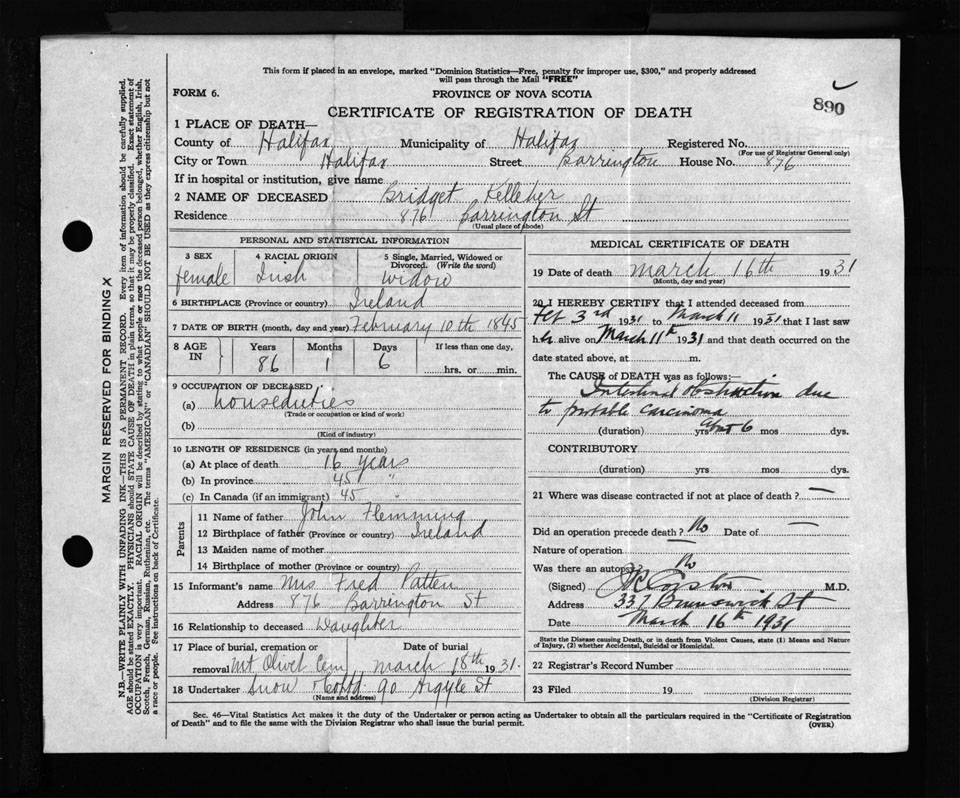 This form if placed in an envelope, marked "Dominion Statistics—Free, penalty for improper use, $300," and properly addressed
will pass through the Mail "FREE"
FORM 6.
PROVINCE OF NOVA SCOTIA
890
CERTIFICATE OF REGISTRATION OF DEATH
1 PLACE OF DEATH—
County of Halifax Municipality of Halifax Registered No.
(For use of Registrar General only)
City or Town Halifax Street Barrington House No. 876
If in hospital or institution, give name
2 NAME OF DECEASED Bridget Kelleher
Residence 876 Barrington St
(Usual place of abode)
PERSONAL AND STATISTICAL INFORMATION
3 SEX 4 RACIAL ORIGIN 5 Single, Married, Widowed or
Divorced. (Write the word)
female Irish widow
6 BIRTHPLACE (Province or country) Ireland
7 DATE OF BIRTH (month, day and year) February 10th 1845
8 AGE IN Years Months Days If less than one day,
86 1 6 hrs. or min.
9 OCCUPATION OF DECEASED
(a) houseduties
(Trade or occupation or kind of work)
(b)
(Kind of industry)
10 LENGTH OF RESIDENCE (in years and months)
(a) At place of death 16 years
(b) In province 45 "
(c) In Canada (if an immigrant) 45 "
Parents
11 Name of father John Flemming
12 Birthplace of father (Province or country) Ireland
13 Maiden name of mother
14 Birthplace of mother (Province or country)
15 Informant's name Mrs Fred Patten
Address 876 Barrington St
16 Relationship to deceased Daughter
17 Place of burial, cremation or Date of burial
removal Mt Olivet Cem March 18th 1931.
18 Undertaker Snow & Co Ltd 90 Argyle St
(Name and address)
MEDICAL CERTIFICATE OF DEATH
19 Date of death March 16th 1931
(Month, day and year)
20 I HEREBY CERTIFY that I attended deceased from
Feb 3rd 1931 to March 11 1931 that I last saw
her alive on March 11th 1931 and that death occurred on the
date stated above, at m.
The CAUSE of DEATH was as follows:—
Intestinal obstruction due
to probable carcinoma
(duration) yrs about 6 mos dys.
CONTRIBUTORY
(duration) yrs mos dys.
21 Where was disease contracted if not at place of death? —
Did an operation precede death? No Date of —
Nature of operation —
Was there an autopsy? No
(Signed) M.D.
Address 337 Brunswick St
Date March 16th 1931
State the Disease causing Death, or in death from Violent Causes, state (1) Means and Nature
of Injury, (2) whether Accidental, Suicidal or Homicidal.
22 Registrar's Record Number
23 Filed 19
(Division Registrar)
Sec. 46—Vital Statistics Act makes it the duty of the Undertaker or person acting as Undertaker to obtain all the particulars required in the "Certificate of Registration
of Death" and to file the same with the Division Registrar who shall issue the burial permit. (OVER)
MARGIN RESERVED FOR BINDING X
N.B.—WRITE PLAINLY WITH UNFADING INK—THIS IS A PERMANENT RECORD. Every item of information should be carefully supplied.
AGE should be stated EXACTLY. PHYSICIANS should STATE CAUSE OF DEATH in plain terms, so that it may be properly classified. Exact statement of
OCCUPATION is very important. RACIAL ORIGIN will be described by stating to what people or race the deceased person belonged, whether English, Irish,
Scotch, French, German, Russian, Ruthenian, etc. The terms "AMERICAN" or "CANADIAN" SHOULD NOT BE USED as they express citizenship but not
a race or people. See instructions on back of Certificate.